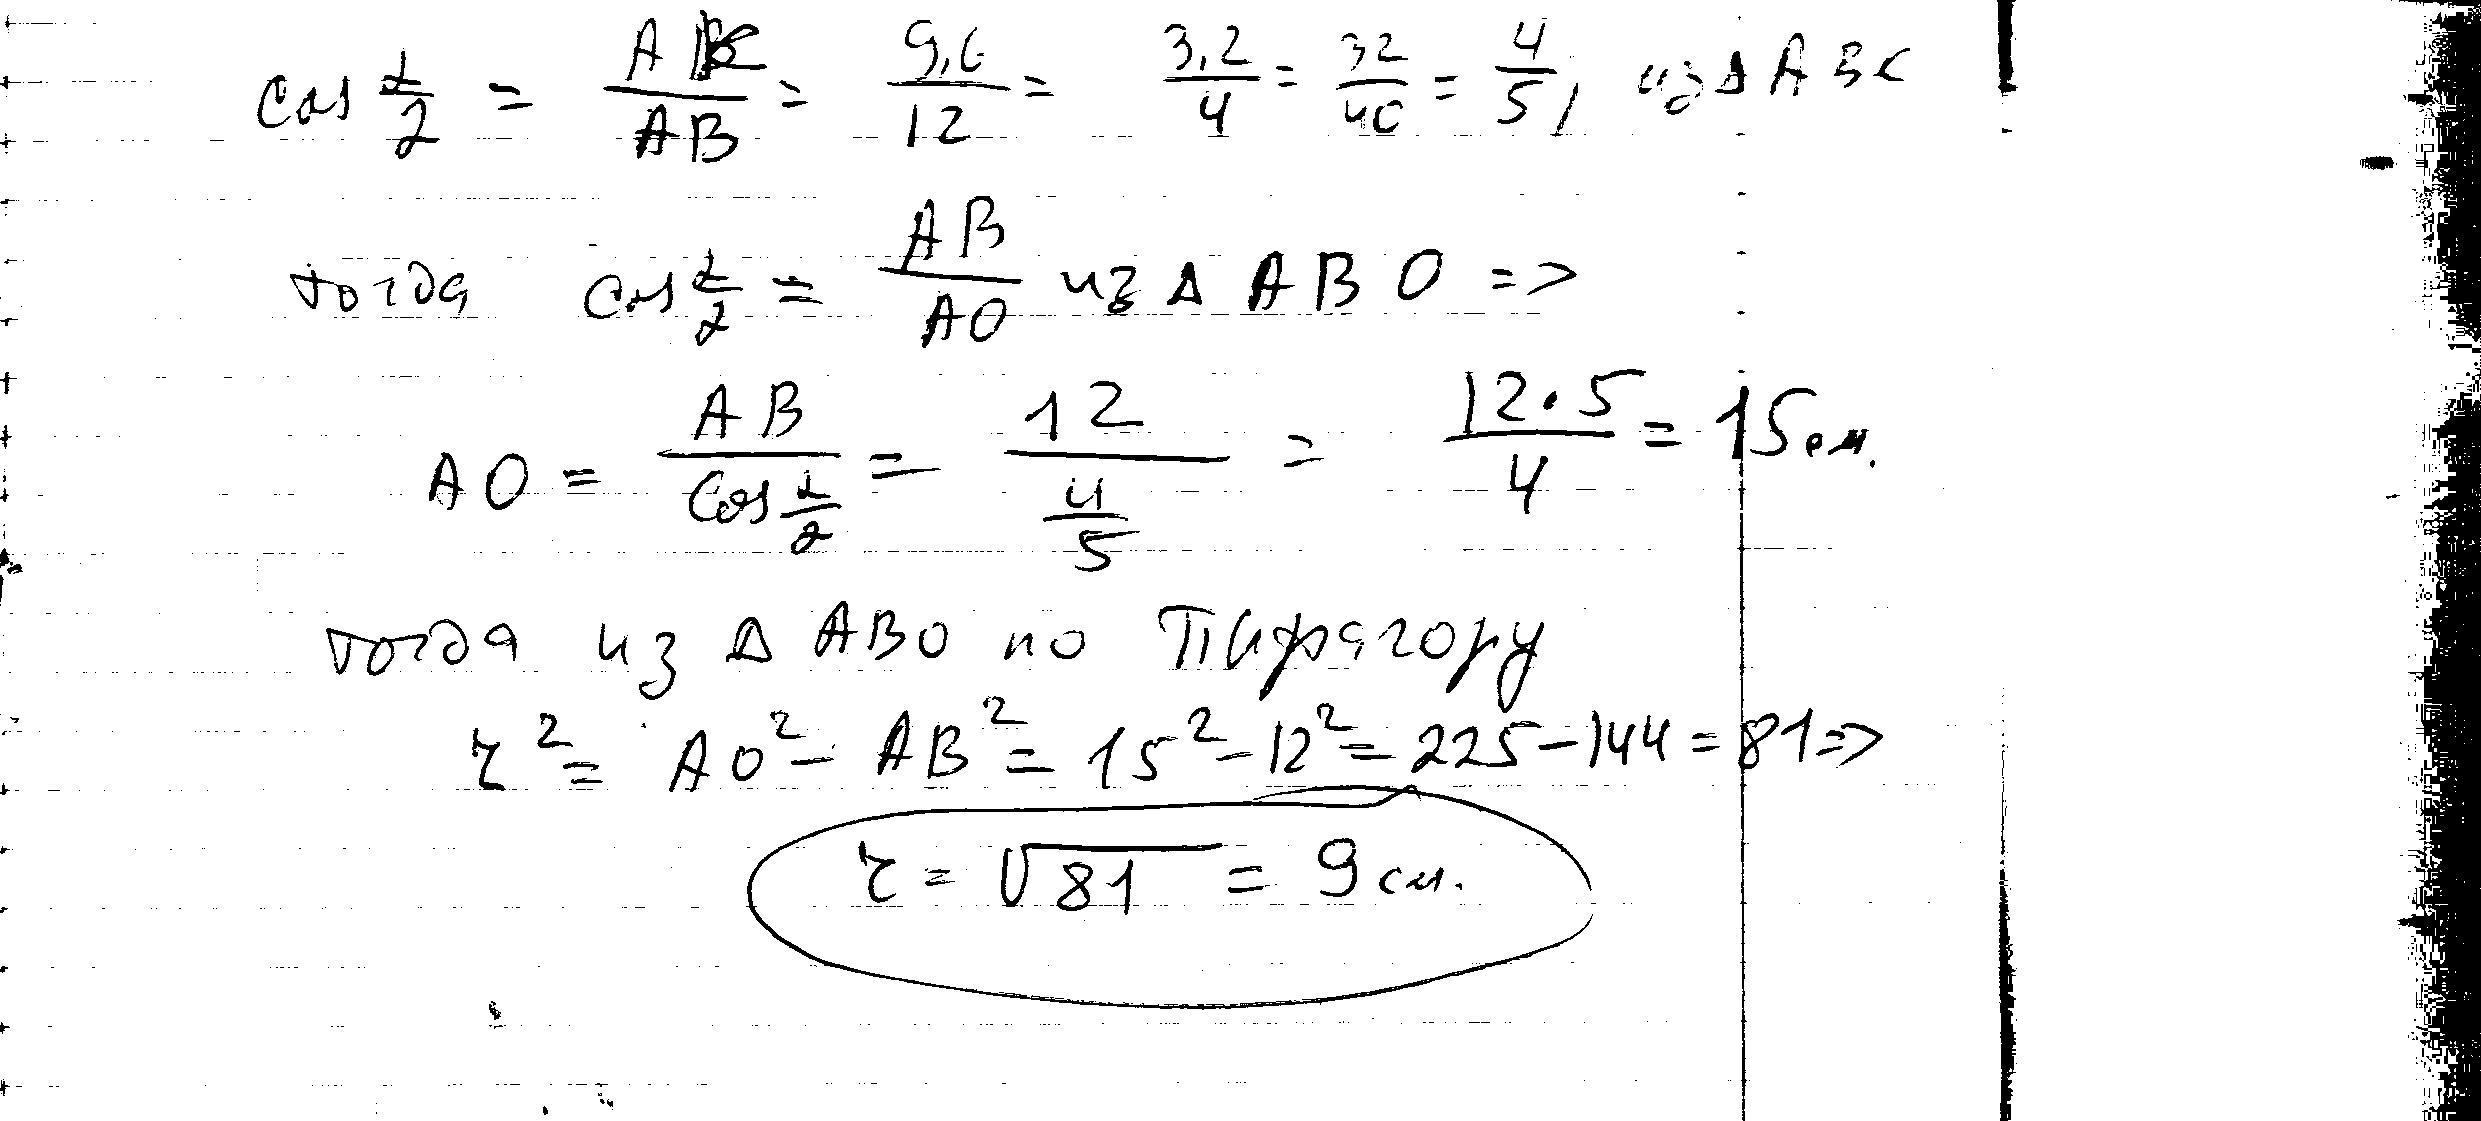 cos α/2 = AC/AB = 9,6/12 = 3,2/4 = 32/40 = 4/5, из Δ ABC
тогда cos α/2 = AB/AO из Δ ABO =>
AO = AB/cos α/2 = 12/(4/5) = 12·5/4 = 15 см.
тогда из Δ ABO по Пифагору
r² = AO² - AB² = 15² - 12² = 225 - 144 = 81 =>
r = √81 = 9 см.